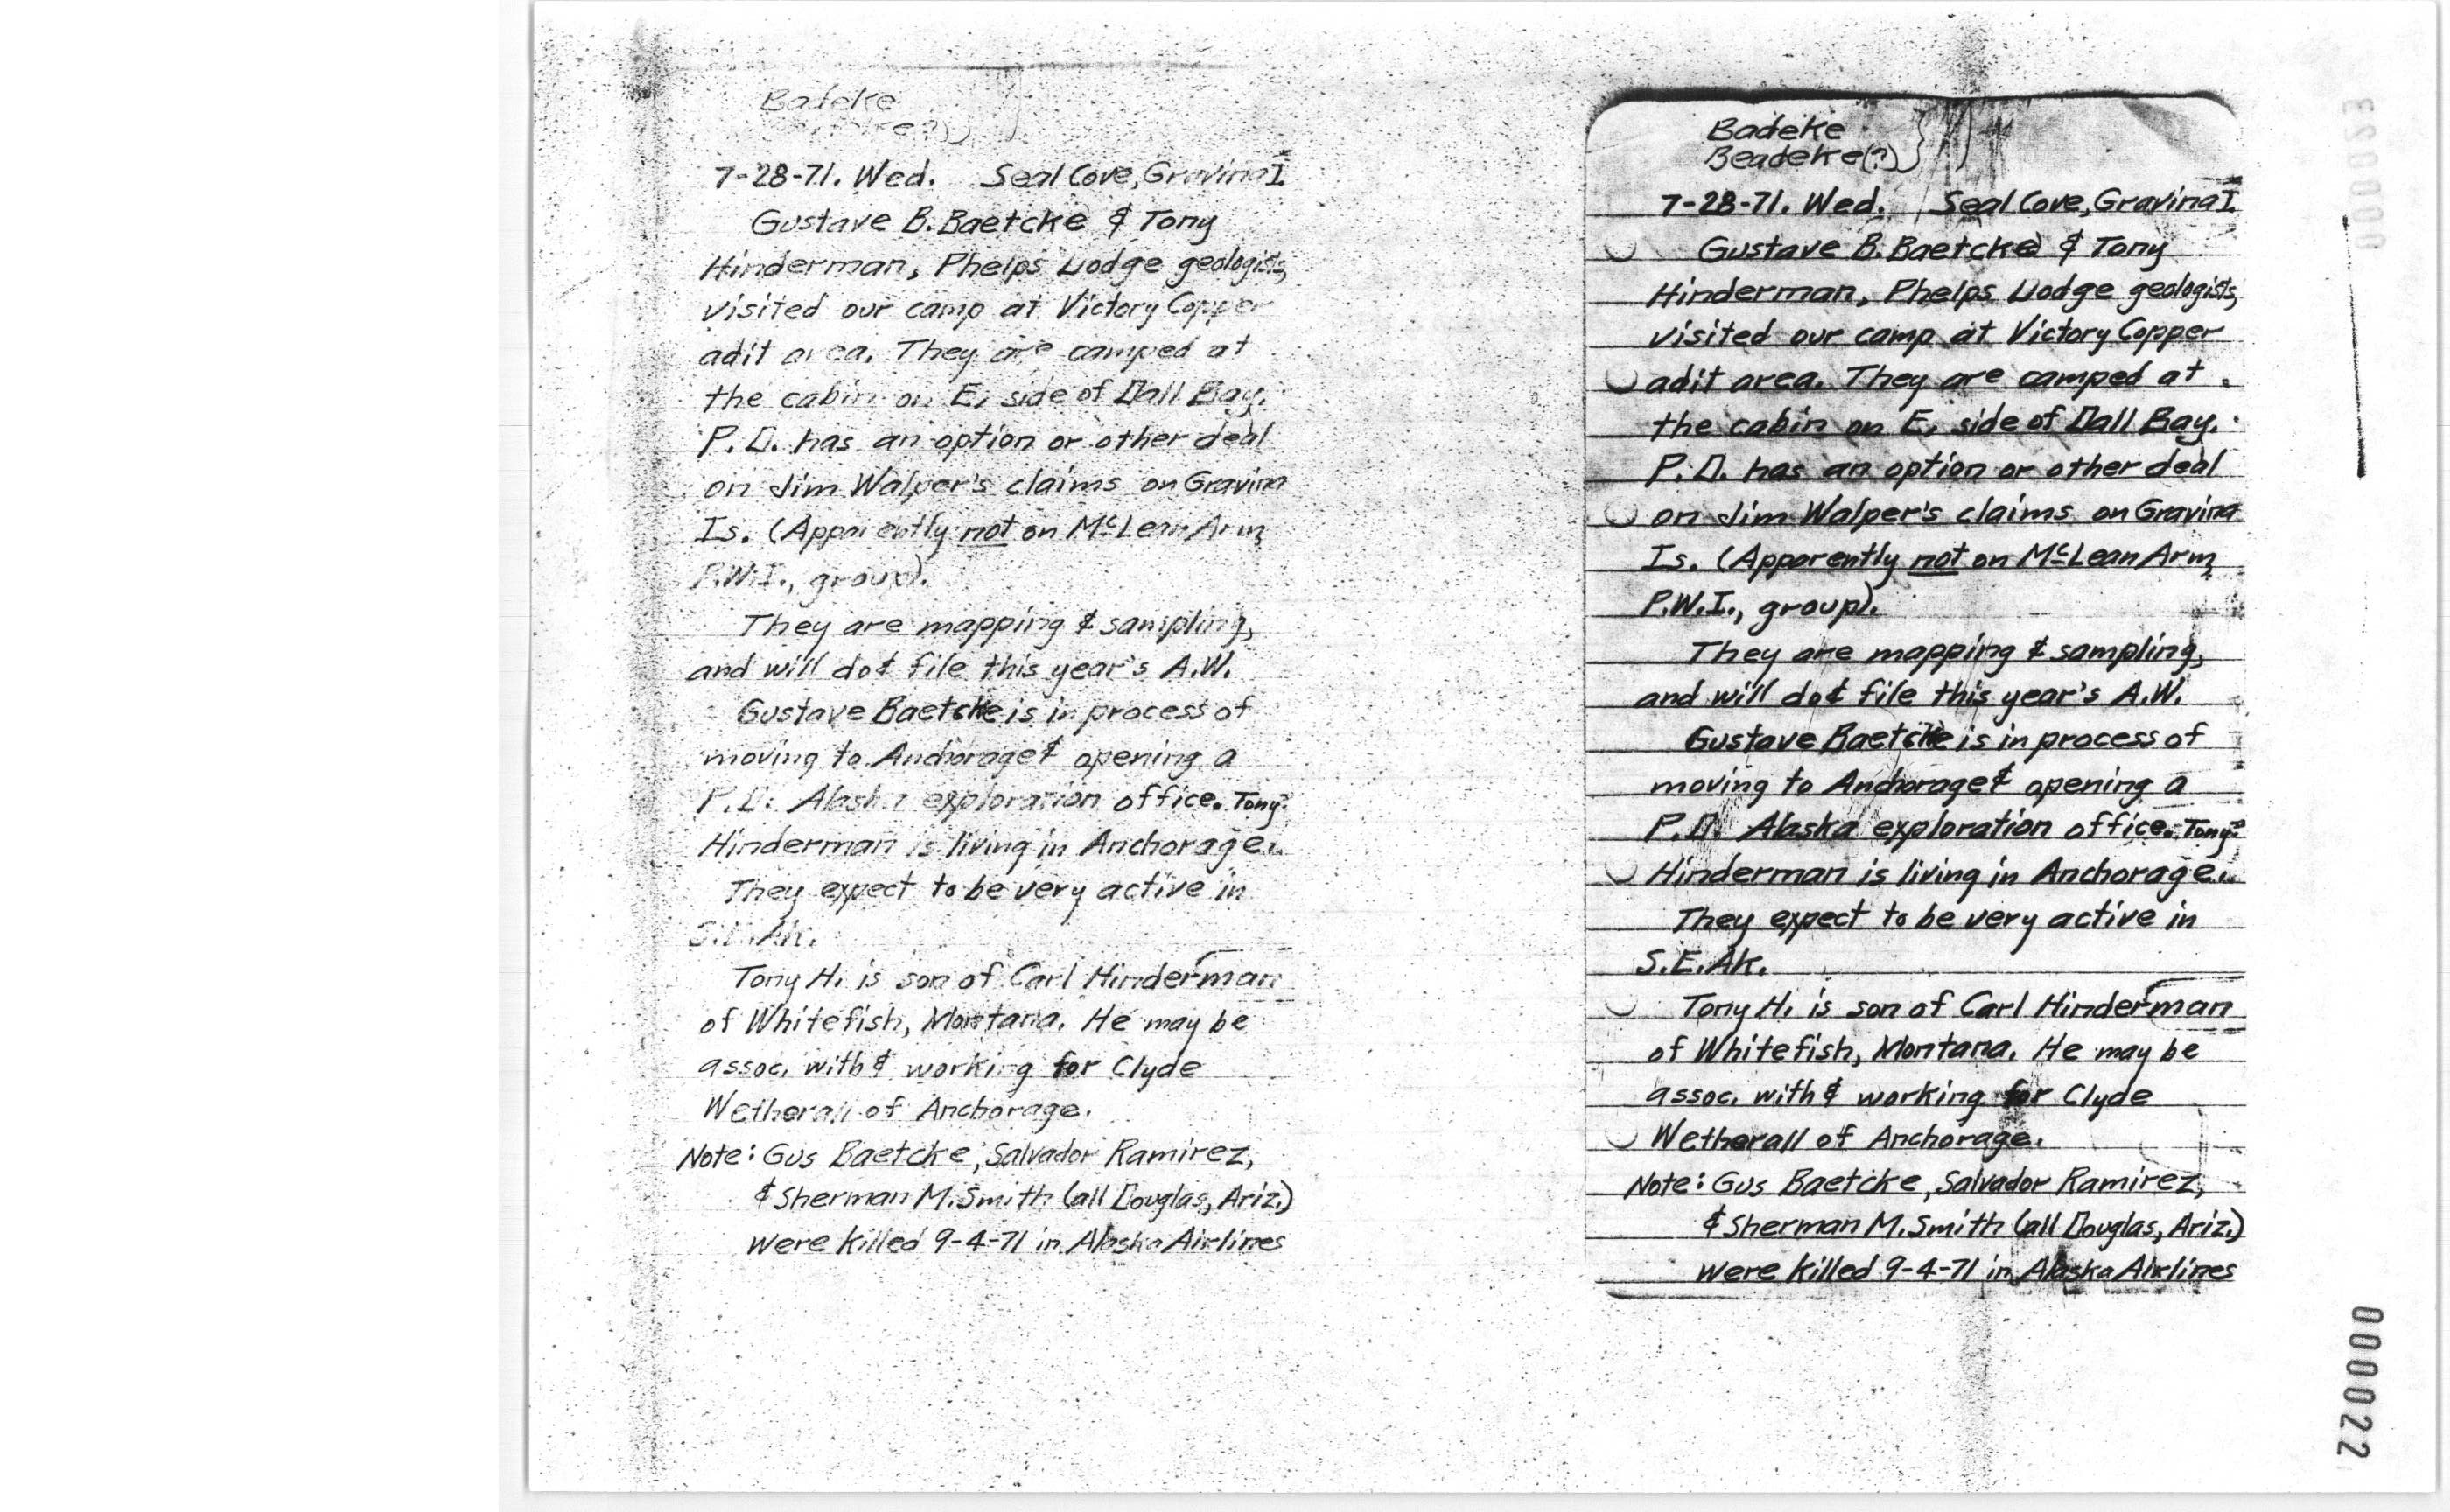 Badeke
7-28-71. Wed. Seal Cove, Gravina I.
Gustave B. Baetcke & Tony
Hinderman, Phelps Dodge geologists,
visited our camp at Victory Copper
adit area. They are camped at
the cabin on E. side of Dall Bay.
P.D. has an option or other deal
on Jim Walper's claims on Gravina
Is. (Apparently not on McLean Arm,
P.W.I., group).
They are mapping & sampling,
and will do & file this year's A.W.
Gustave Baetcke is in process of
moving to Anchorage & opening a
P.D. Alaska exploration office. Tony
Hinderman is living in Anchorage.
They expect to be very active in
S.E. Ak.
Tony H. is son of Carl Hinderman
of Whitefish, Montana. He may be
assoc. with & working for Clyde
Wetherall of Anchorage.
Note: Gus Baetcke, Salvador Ramirez,
& Sherman M. Smith (all Douglas, Ariz.)
were killed 9-4-71 in Alaska Airlines
Badeke
Beadeke(?)
7-28-71. Wed. Seal Cove, Gravina I.
Gustave B. Baetcke & Tony
Hinderman, Phelps Dodge geologists,
visited our camp at Victory Copper
adit area. They are camped at
the cabin on E. side of Dall Bay.
P.D. has an option or other deal
on Jim Walper's claims on Gravina
Is. (Apparently not on McLean Arm,
P.W.I., group).
They are mapping & sampling,
and will do & file this year's A.W.
Gustave Baetcke is in process of
moving to Anchorage & opening a
P.D. Alaska exploration office. Tony
Hinderman is living in Anchorage.
They expect to be very active in
S.E. Ak.
Tony H. is son of Carl Hinderman
of Whitefish, Montana. He may be
assoc. with & working for Clyde
Wetherall of Anchorage.
Note: Gus Baetcke, Salvador Ramirez,
& Sherman M. Smith (all Douglas, Ariz.)
were killed 9-4-71 in Alaska Airlines
000023
000022